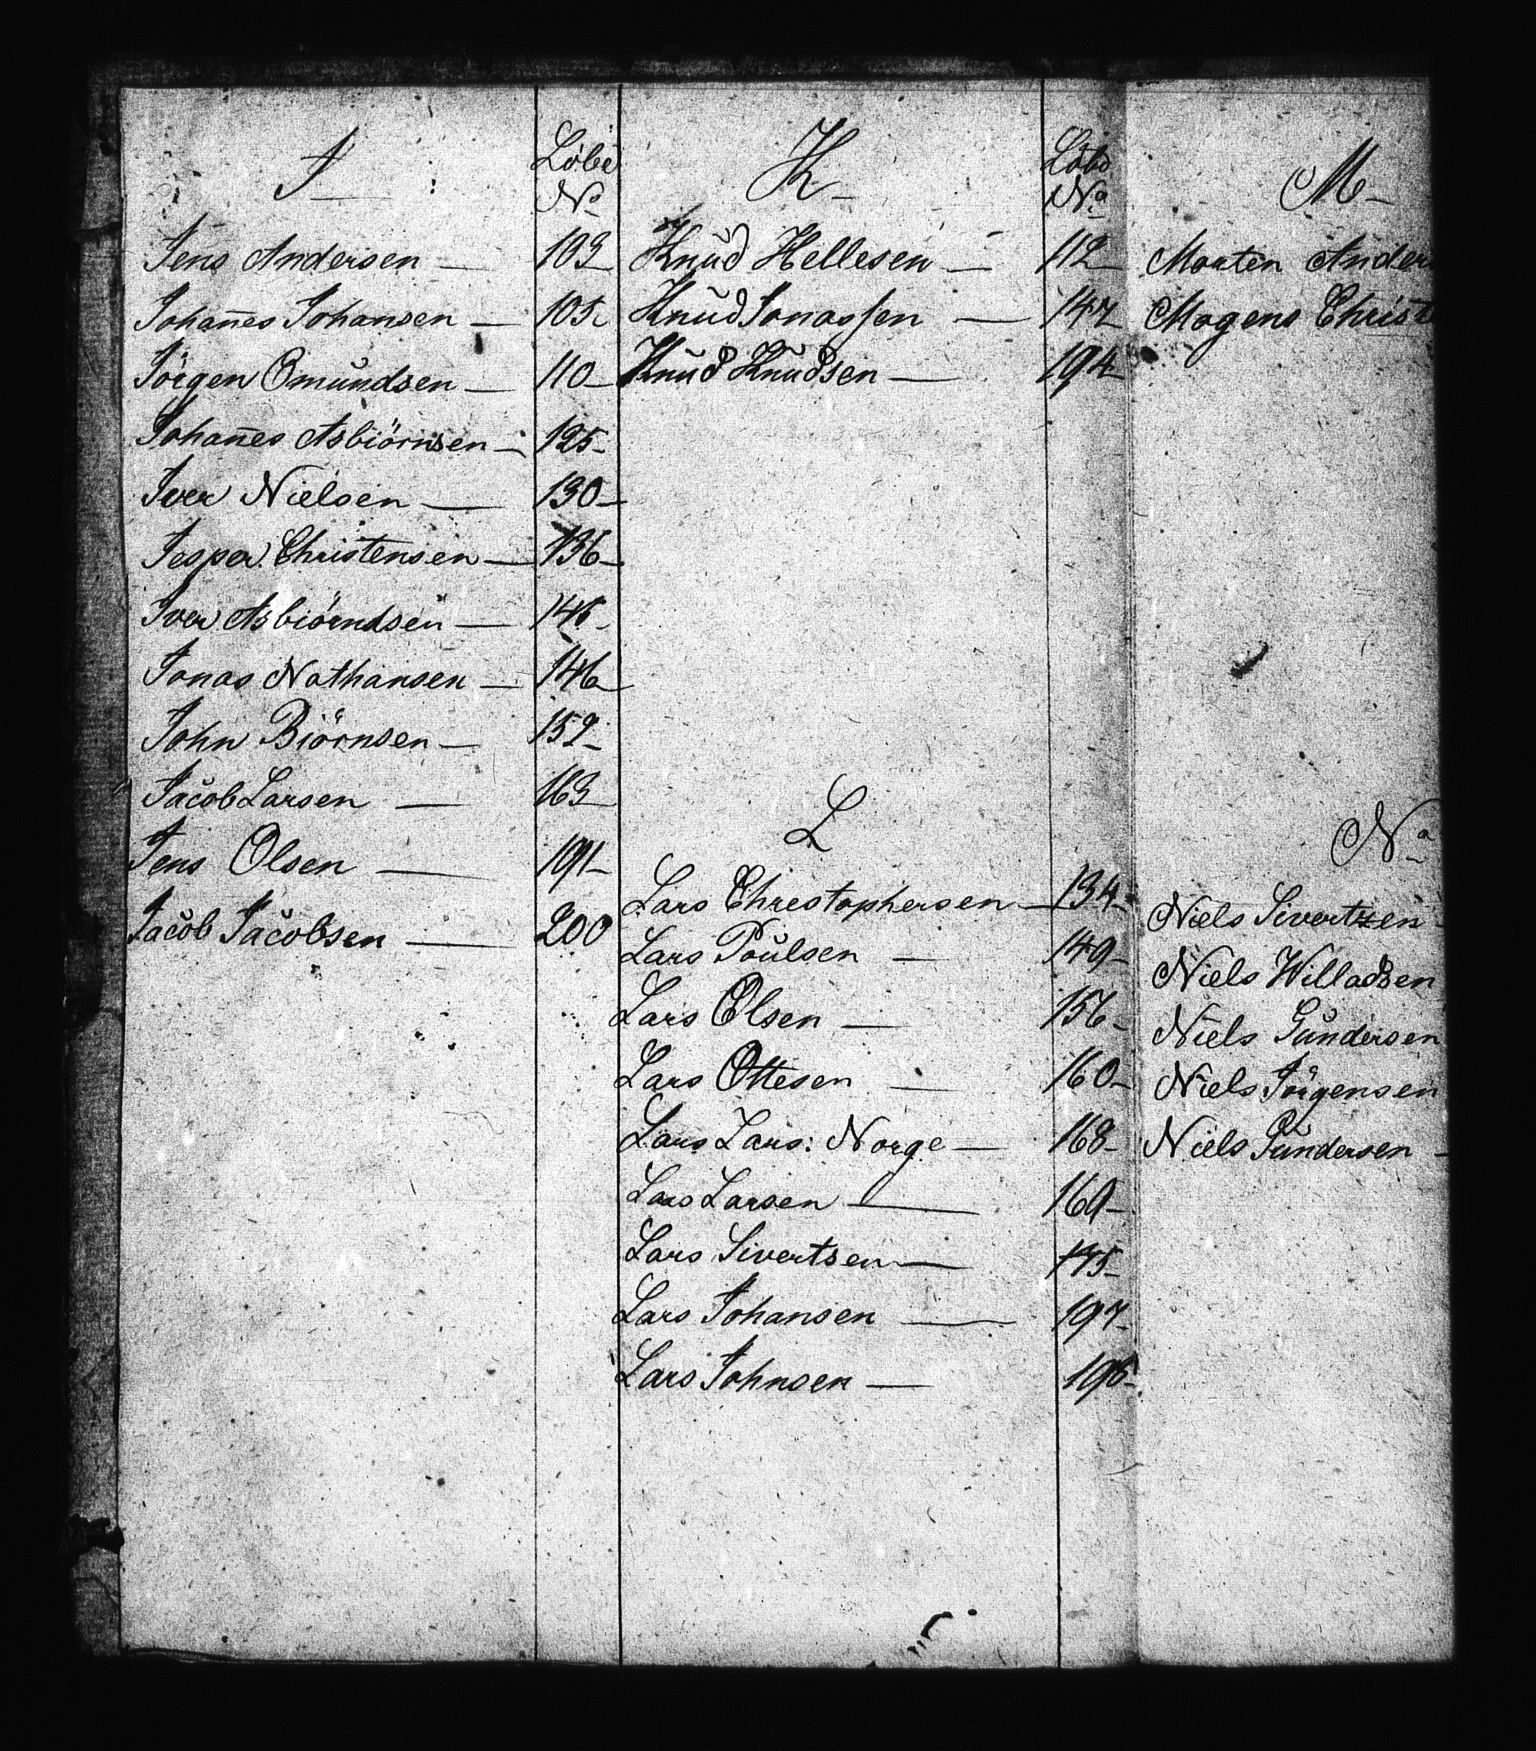 J
Löbe
No
Jens Andersen — 103
Johan̄es Johansen — 105
Jörgen Omundsen — 110
Johan̄es Asbiörnsen — 125
Iver Nielsen — 130
Jesper Christensen — 136
Iver Asbiörndsen — 145
Jonas Nathansen — 146
John Biörnsen — 152
Jacob Larsen — 163
Jens Olsen — 191
Jacob Jacobsen — 200
K
Löbe
No
Knud Hellesen — 112
Knud Jonassen — 147
Knud Knudsen — 194
L
Lars Christophersen — 134
Lars Poulsen — 149
Lars Olsen — 156
Lars Ottesen — 160
Lars Lars: Norge — 168
Lars Larsen — 169
Lars Sivertsen — 175
Lars Johansen — 197
Lars Johnsen —
M
Morten Ander
Mogens Christ
N
Niels Sivertzen
Niels Willadsen
Niels Gundersen
Niels Jörgensen
Niels Gundersen —